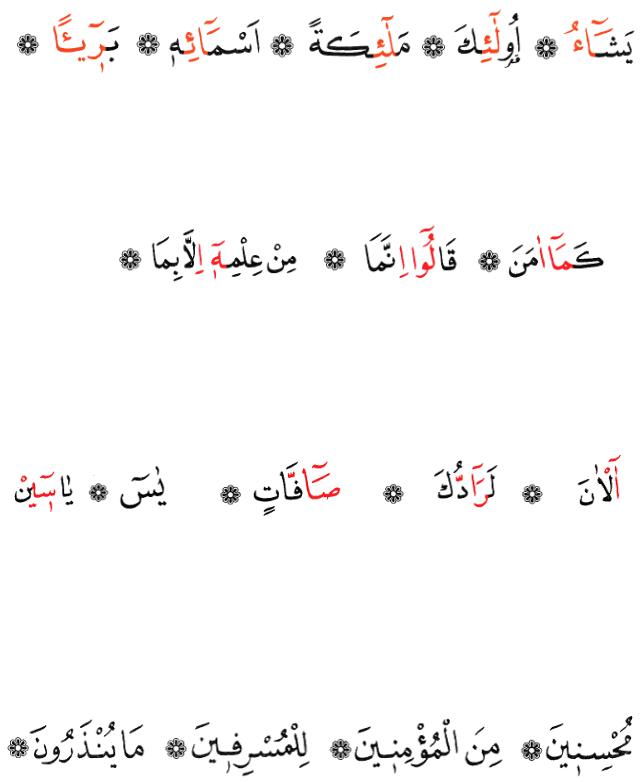 يَشَٓاءُ ۞ اُو۬لٰٓئِكَ ۞ مَلٰٓئِكَةً ۞ اَسْمَٓائِه۪ ۞ بَر۪ٓيـًٔا ۞
كَمَٓا اٰمَنَ ۞ قَالُٓوا اِنَّمَا ۞ مِنْ عِلْمِه۪ٓ اِلَّا بِمَا ۞
آَلْاٰنَ ۞ لَرَٓادُّكَ ۞ صَٓافَّاتٍ ۞ يٰسٓ ۞ يَٰا س۪ٓينْ
مُحْسِن۪ينَ ۞ مِنَ الْمُؤْمِن۪ينَ ۞ لِلْمُسْرِف۪ينَ ۞ مَا يُنْذَرُونَ ۞